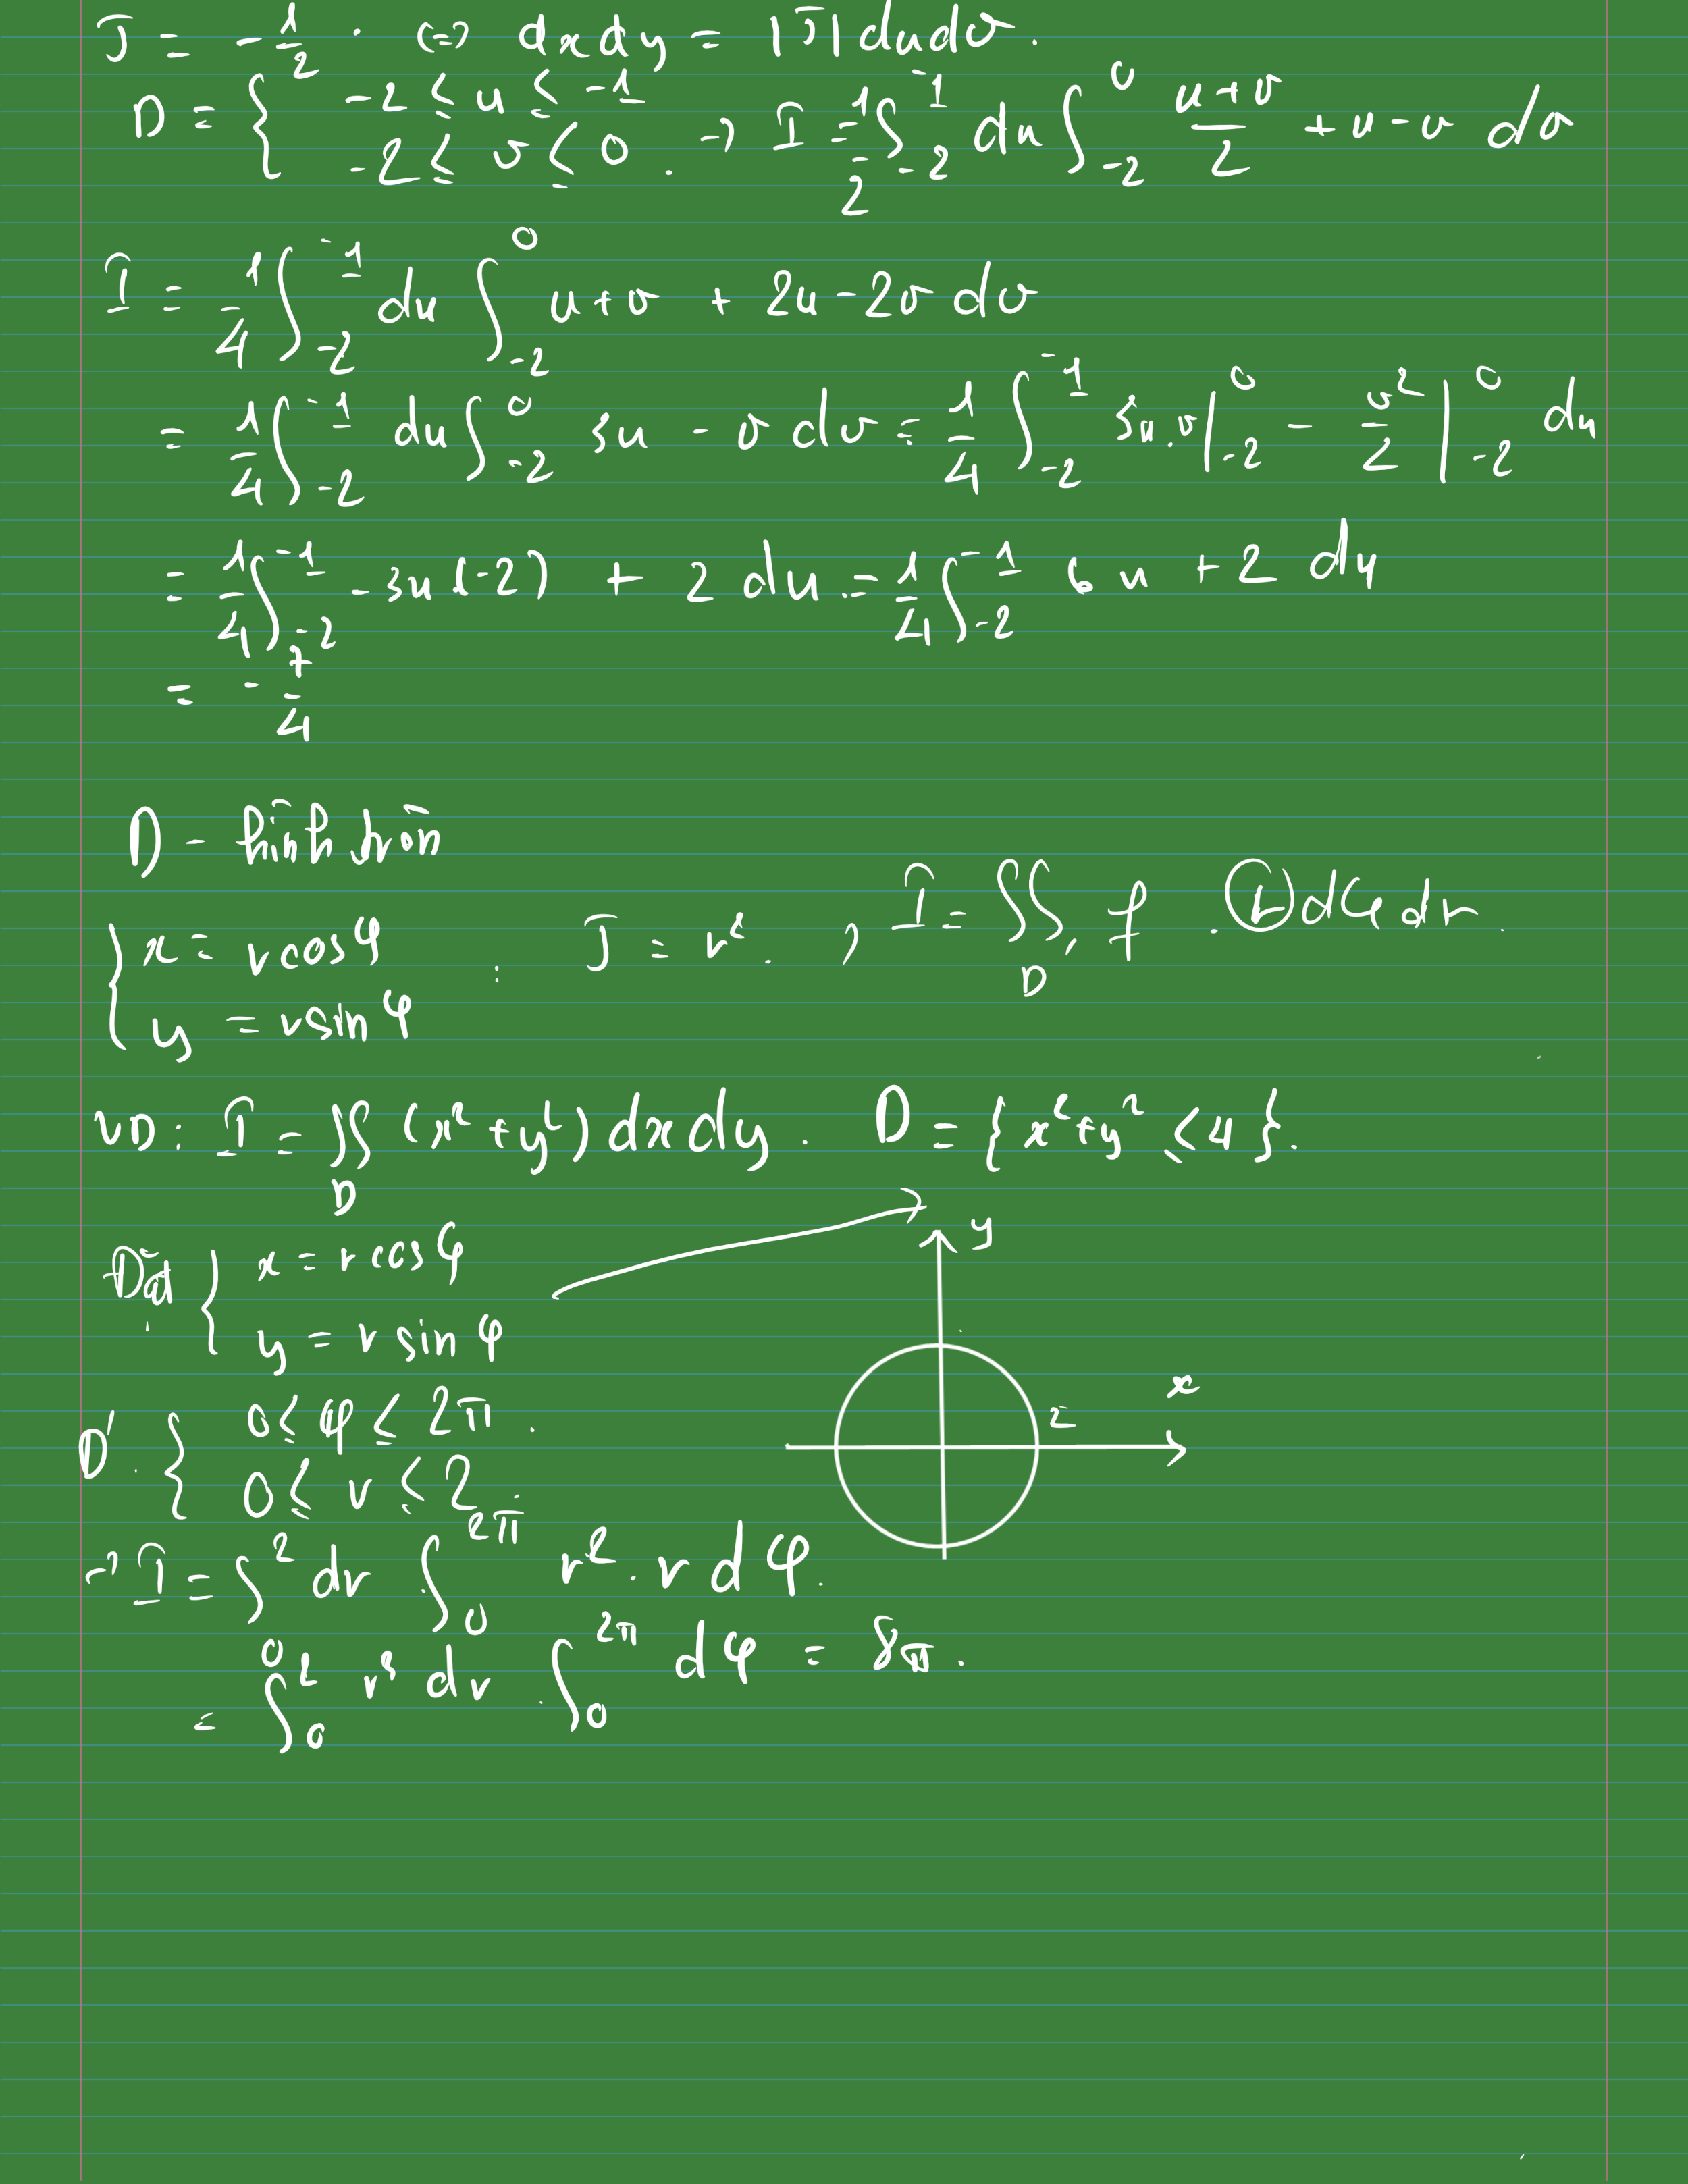 J = -1/2 . <=> dxdy = |J| dudv.
D = { -2 ≤ u ≤ -1
-2 ≤ v ≤ 0 . -> I = 1/2 ∫_{-2}^{-1} du ∫_{-2}^{0} (u+v)/2 + u - v dv
I = 1/4 ∫_{-2}^{-1} du ∫_{-2}^{0} u+v + 2u - 2v dv
= 1/4 ∫_{-2}^{-1} du ∫_{-2}^{0} 3u - v dv = 1/4 ∫_{-2}^{-1} 3u.v |_{-2}^{0} - v²/2 |_{-2}^{0} du
= 1/4 ∫_{-2}^{-1} -3u(-2) + 2 du = 1/4 ∫_{-2}^{-1} 6u + 2 du
= -7/4
D - hình tròn
{ x = r cos φ : J = r . , I = ∫∫_{D'} f . r dφ dr
y = r sin φ
VD: I = ∫∫_D (x² + y²) dxdy . D = { x² + y² ≤ 4 }.
Đặt { x = r cos φ
y = r sin φ
y
x
2
D' { 0 ≤ φ ≤ 2π .
0 ≤ r ≤ 2 .
-> I = ∫_0^2 dr ∫_0^{2π} r² . r dφ.
= ∫_0^2 r³ dr . ∫_0^{2π} dφ = 8π.